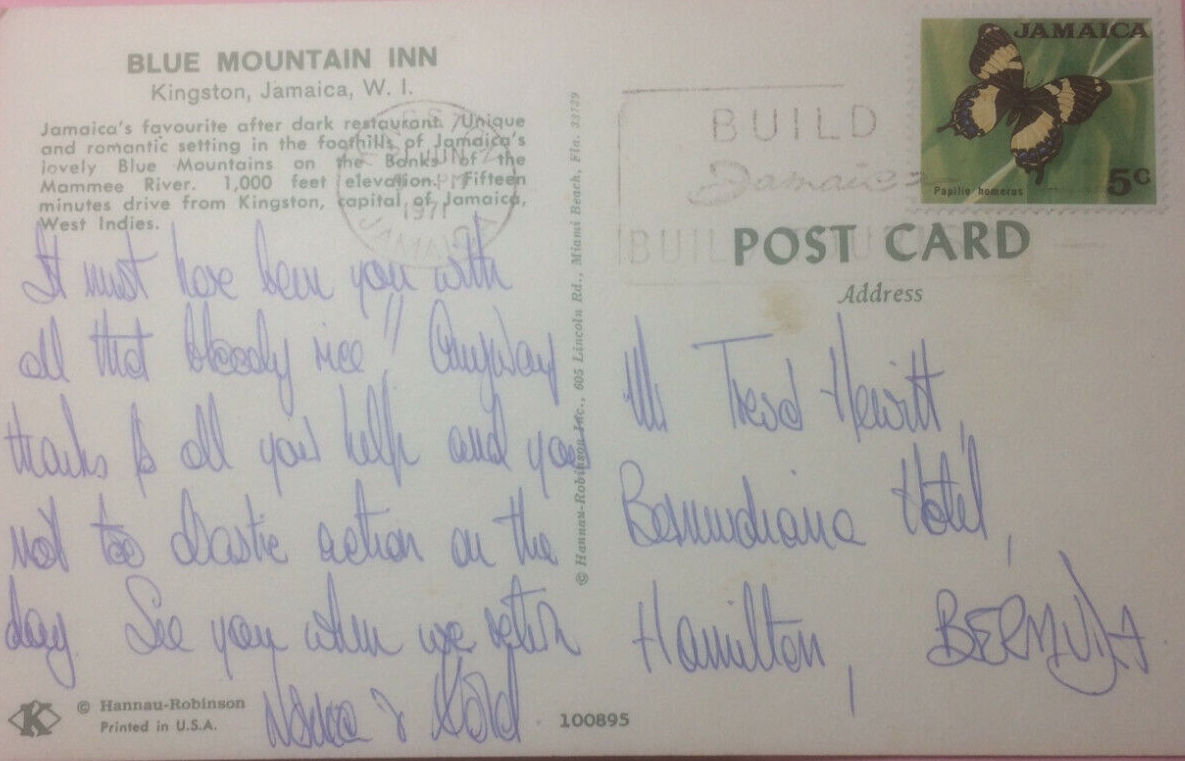 BLUE MOUNTAIN INN
Kingston, Jamaica, W. I.
Jamaica's favourite after dark restaurant. Unique
and romantic setting in the foothills of Jamaica's
lovely Blue Mountains on the Banks of the
Mammee River. 1,000 feet elevation. Fifteen
minutes drive from Kingston, capital of Jamaica,
West Indies.
It must have been you with
all that bloody rice!! Anyway
thanks for all your help and your
not too drastic action on the
day. See you when we return
& 
© Hannau-Robinson
Printed in U.S.A.
K
100895
© Hannau-Robinson Inc., 605 Lincoln Rd., Miami Beach, Fla. 33739
JUN
PM
1971
JAMAICA
BUILD
Jamaica
BUILD
JAMAICA
Papilio homerus
5c
POST CARD
Address
Mr Hewitt,
Bermudiana Hotel,
Hamilton, BERMUDA.